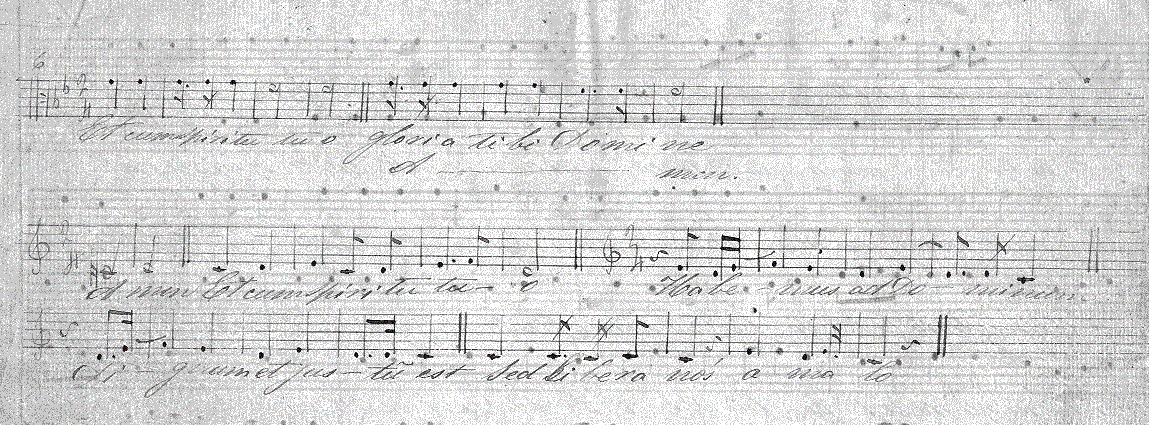 6
Et cum spiritu tu o gloria ti bi Domi ne
A men.
A men Et cum spiri tu tu - o Habe - mus ad Do - minum.
Di - gnum et jus - tũ est Sed libera nós a ma lo